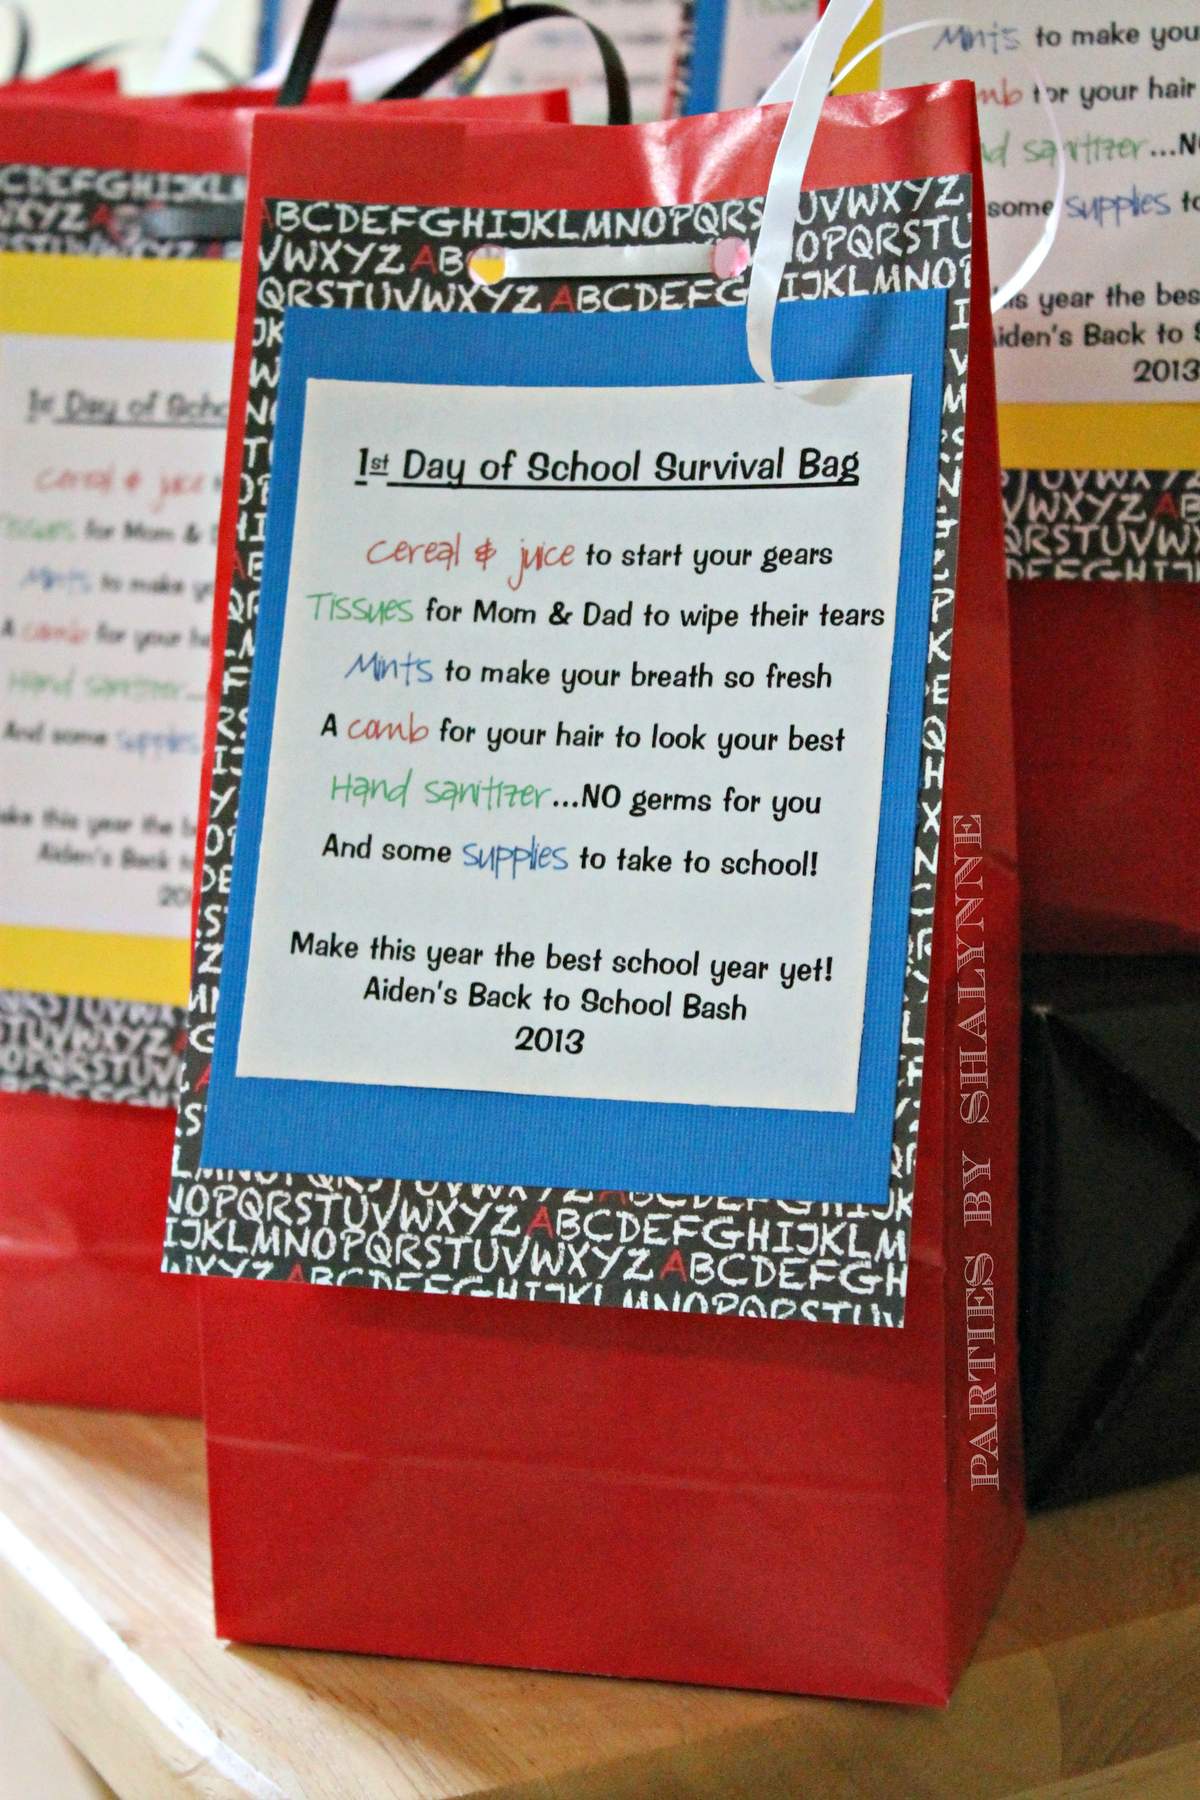 ABCDEFGHIJKLMNOPQRS UVWXYZ
VWXYZ AB OPQRSTU
QRSTUVWXYZ ABCDEFG IJKLMNOP
1st Day of School Survival Bag
Cereal & juice to start your gears
Tissues for Mom & Dad to wipe their tears
Mints to make your breath so fresh
A comb for your hair to look your best
Hand sanitizer...NO germs for you
And some supplies to take to school!
Make this year the best school year yet!
Aiden's Back to School Bash
2013
NOPQRSTUVWXYZ ABCDEFGHIJKLM
IJKLMNOPQRSTUVWXYZ ABCDEFGH
WXYZ ABCDEFGHIJKLMNOPQRSTUV
PARTIES BY SHALYNNE
1st Day of Scho
Cereal & juice
Tissues for Mom & D
Mints to make yo
A comb for your ha
Hand sanitizer...
And some supplies
ake this year the b
Aiden's Back
20
Mints to make you
mb for your hair
nd sanitizer...N
some supplies to
is year the bes
iden's Back to S
2013